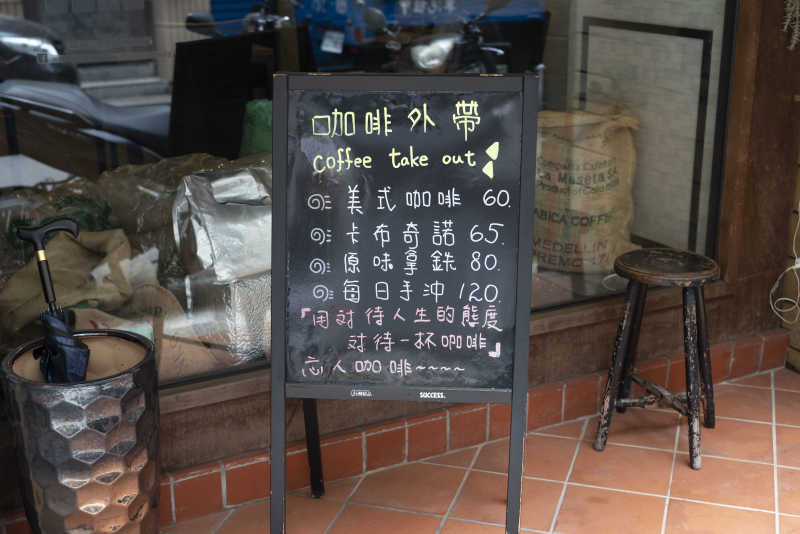 咖啡外帶
coffee take out
美式咖啡 60.
卡布奇諾 65.
原味拿鉄 80.
每日手沖 120.
『用対待人生的態度
対待一杯咖啡』
忘人咖啡~~~~
SUCCESS.
ABICA COFFEE
MEDELLIN